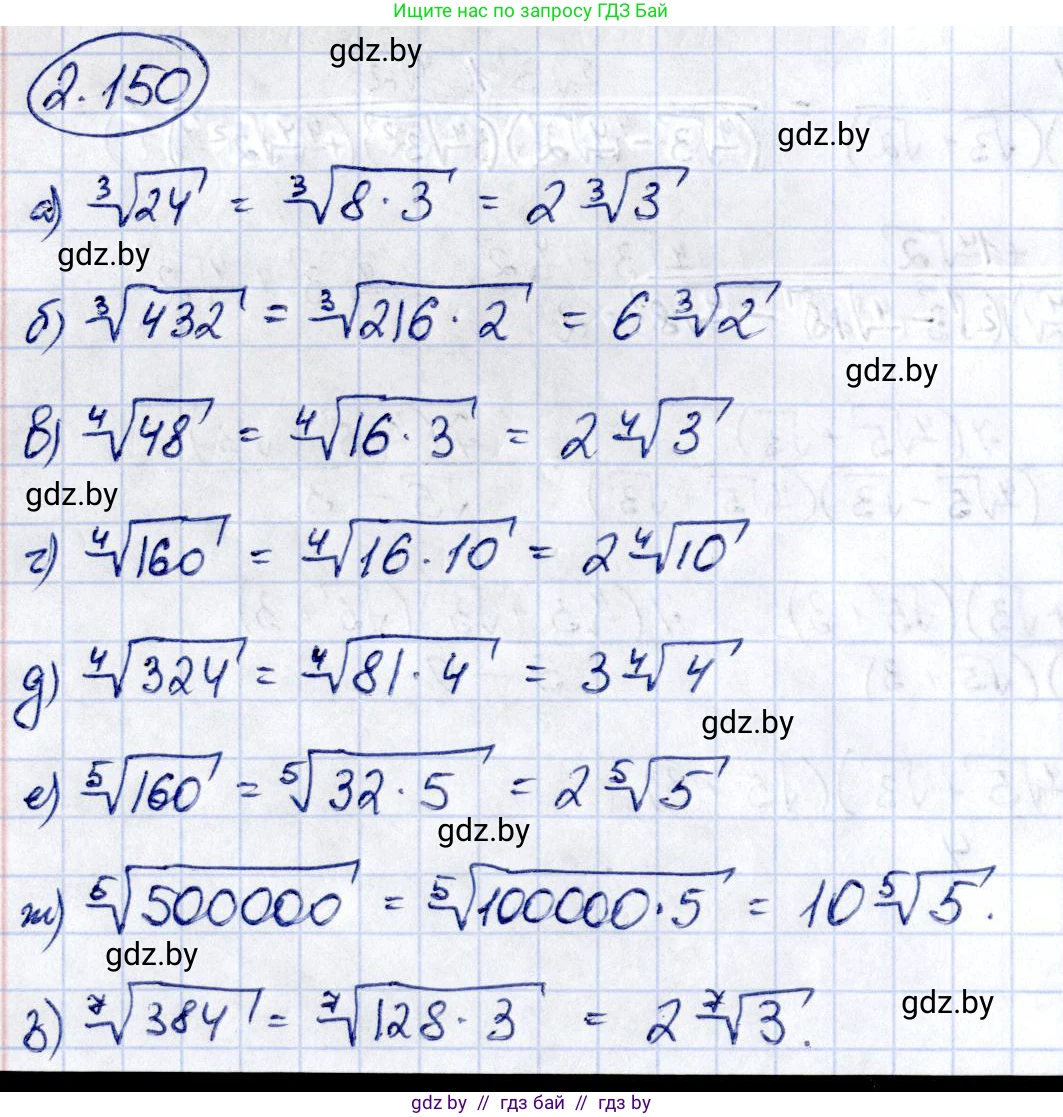 Ищите нас по запросу ГДЗ Бай
gdz.by
2.150
gdz.by
а) ∛24 = ∛(8 · 3) = 2∛3
gdz.by
б) ∛432 = ∛(216 · 2) = 6∛2
gdz.by
в) ∜48 = ∜(16 · 3) = 2∜3
gdz.by
г) ∜160 = ∜(16 · 10) = 2∜10
д) ∜324 = ∜(81 · 4) = 3∜4
gdz.by
е) ⁵√160 = ⁵√(32 · 5) = 2⁵√5
gdz.by
ж) ⁵√500000 = ⁵√(100000 · 5) = 10⁵√5.
gdz.by
gdz.by
з) ⁷√384 = ⁷√(128 · 3) = 2⁷√3.
gdz.by // гдз бай // гдз by